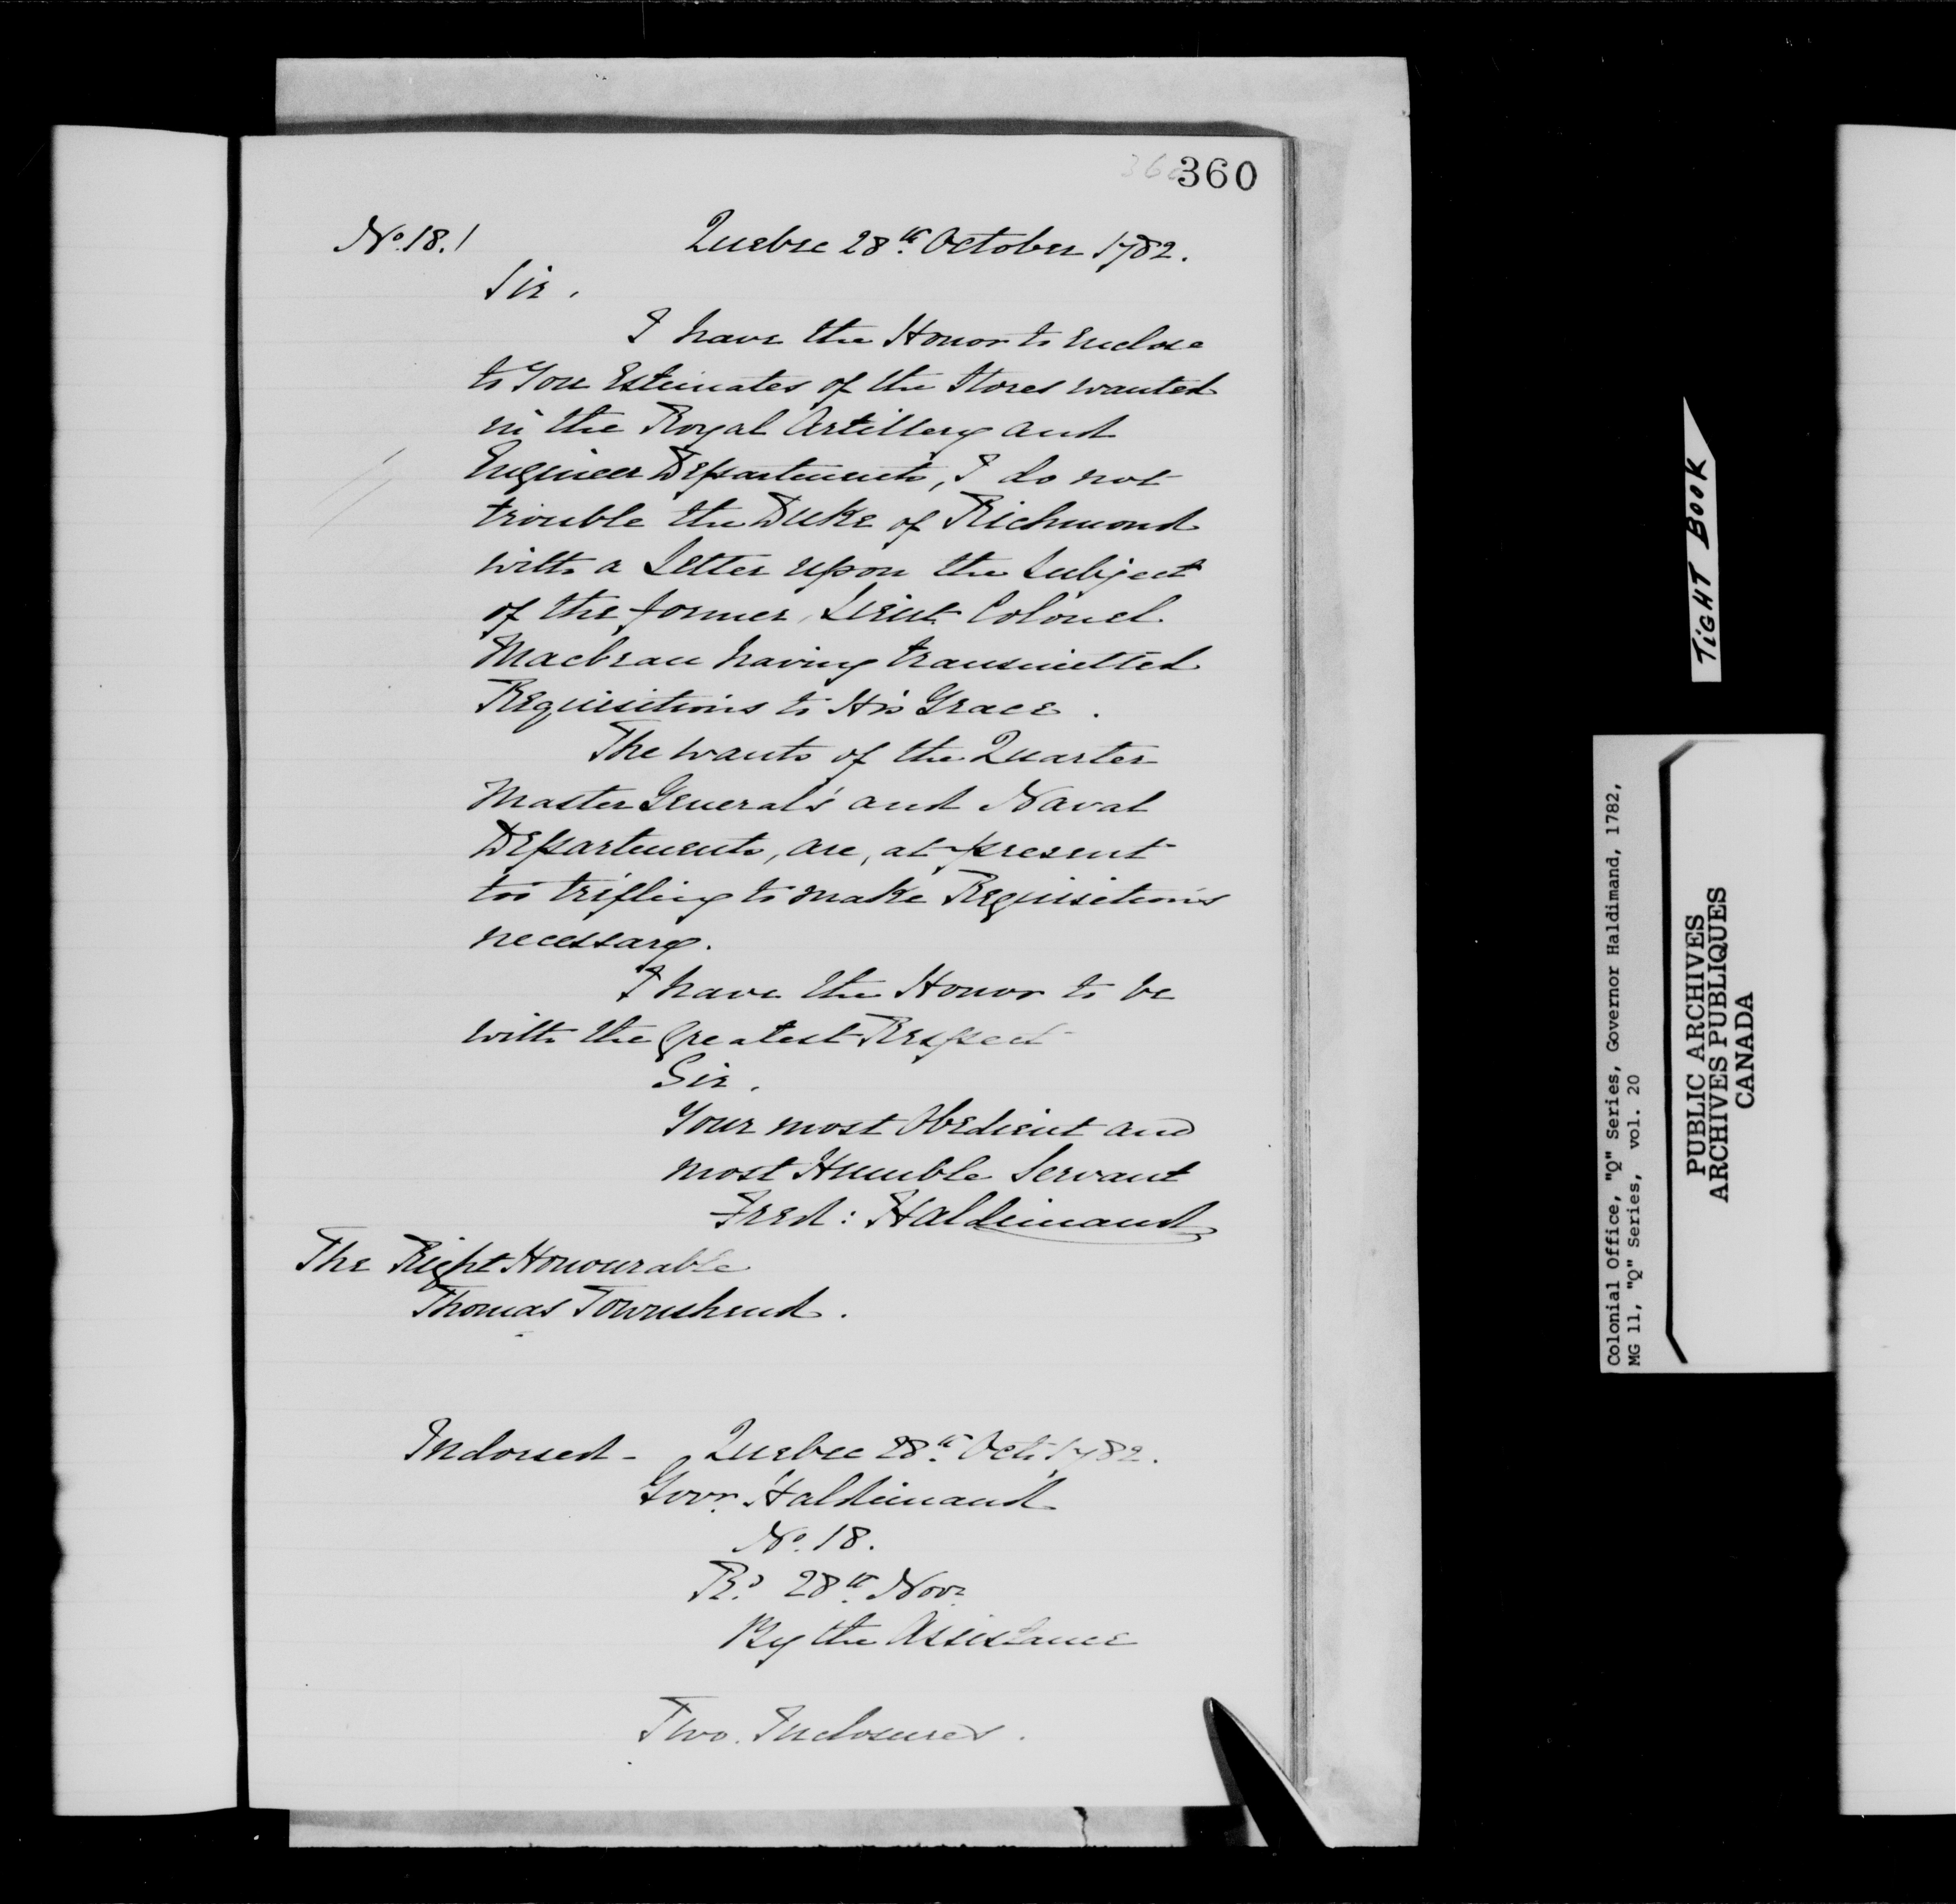 360
No. 18. /
Quebec 28th October 1782.
Sir.
I have the Honor to enclose
to You Estimates of the Stores wanted
in the Royal Artillery and
Engineer Departments, I do not
trouble the Duke of Richmond
with a Letter upon the Subject
of the former, Lieut Colonel
Macbean having transmitted
Requisitions to His Grace.
The wants of the Quarter
Master General's and Naval
Departments, are, at present
too trifling to make Requisitions
necessary.
I have the Honor to be
with the Greatest Respect
Sir.
Your most Obedient and
most Humble Servant
Fred: Haldimand
The Right Honourable
Thomas Townshend.
Indorsed - Quebec 28th Oct. 1782.
Govr. Haldimand
No. 18.
Rd. 28th Novr.
By the Assistance
Two Inclosures.
TiGHT BOOK
Colonial Office, "Q" Series, Governor Haldimand, 1782,
MG 11, "Q" Series, vol. 20
PUBLIC ARCHIVES
ARCHIVES PUBLIQUES
CANADA